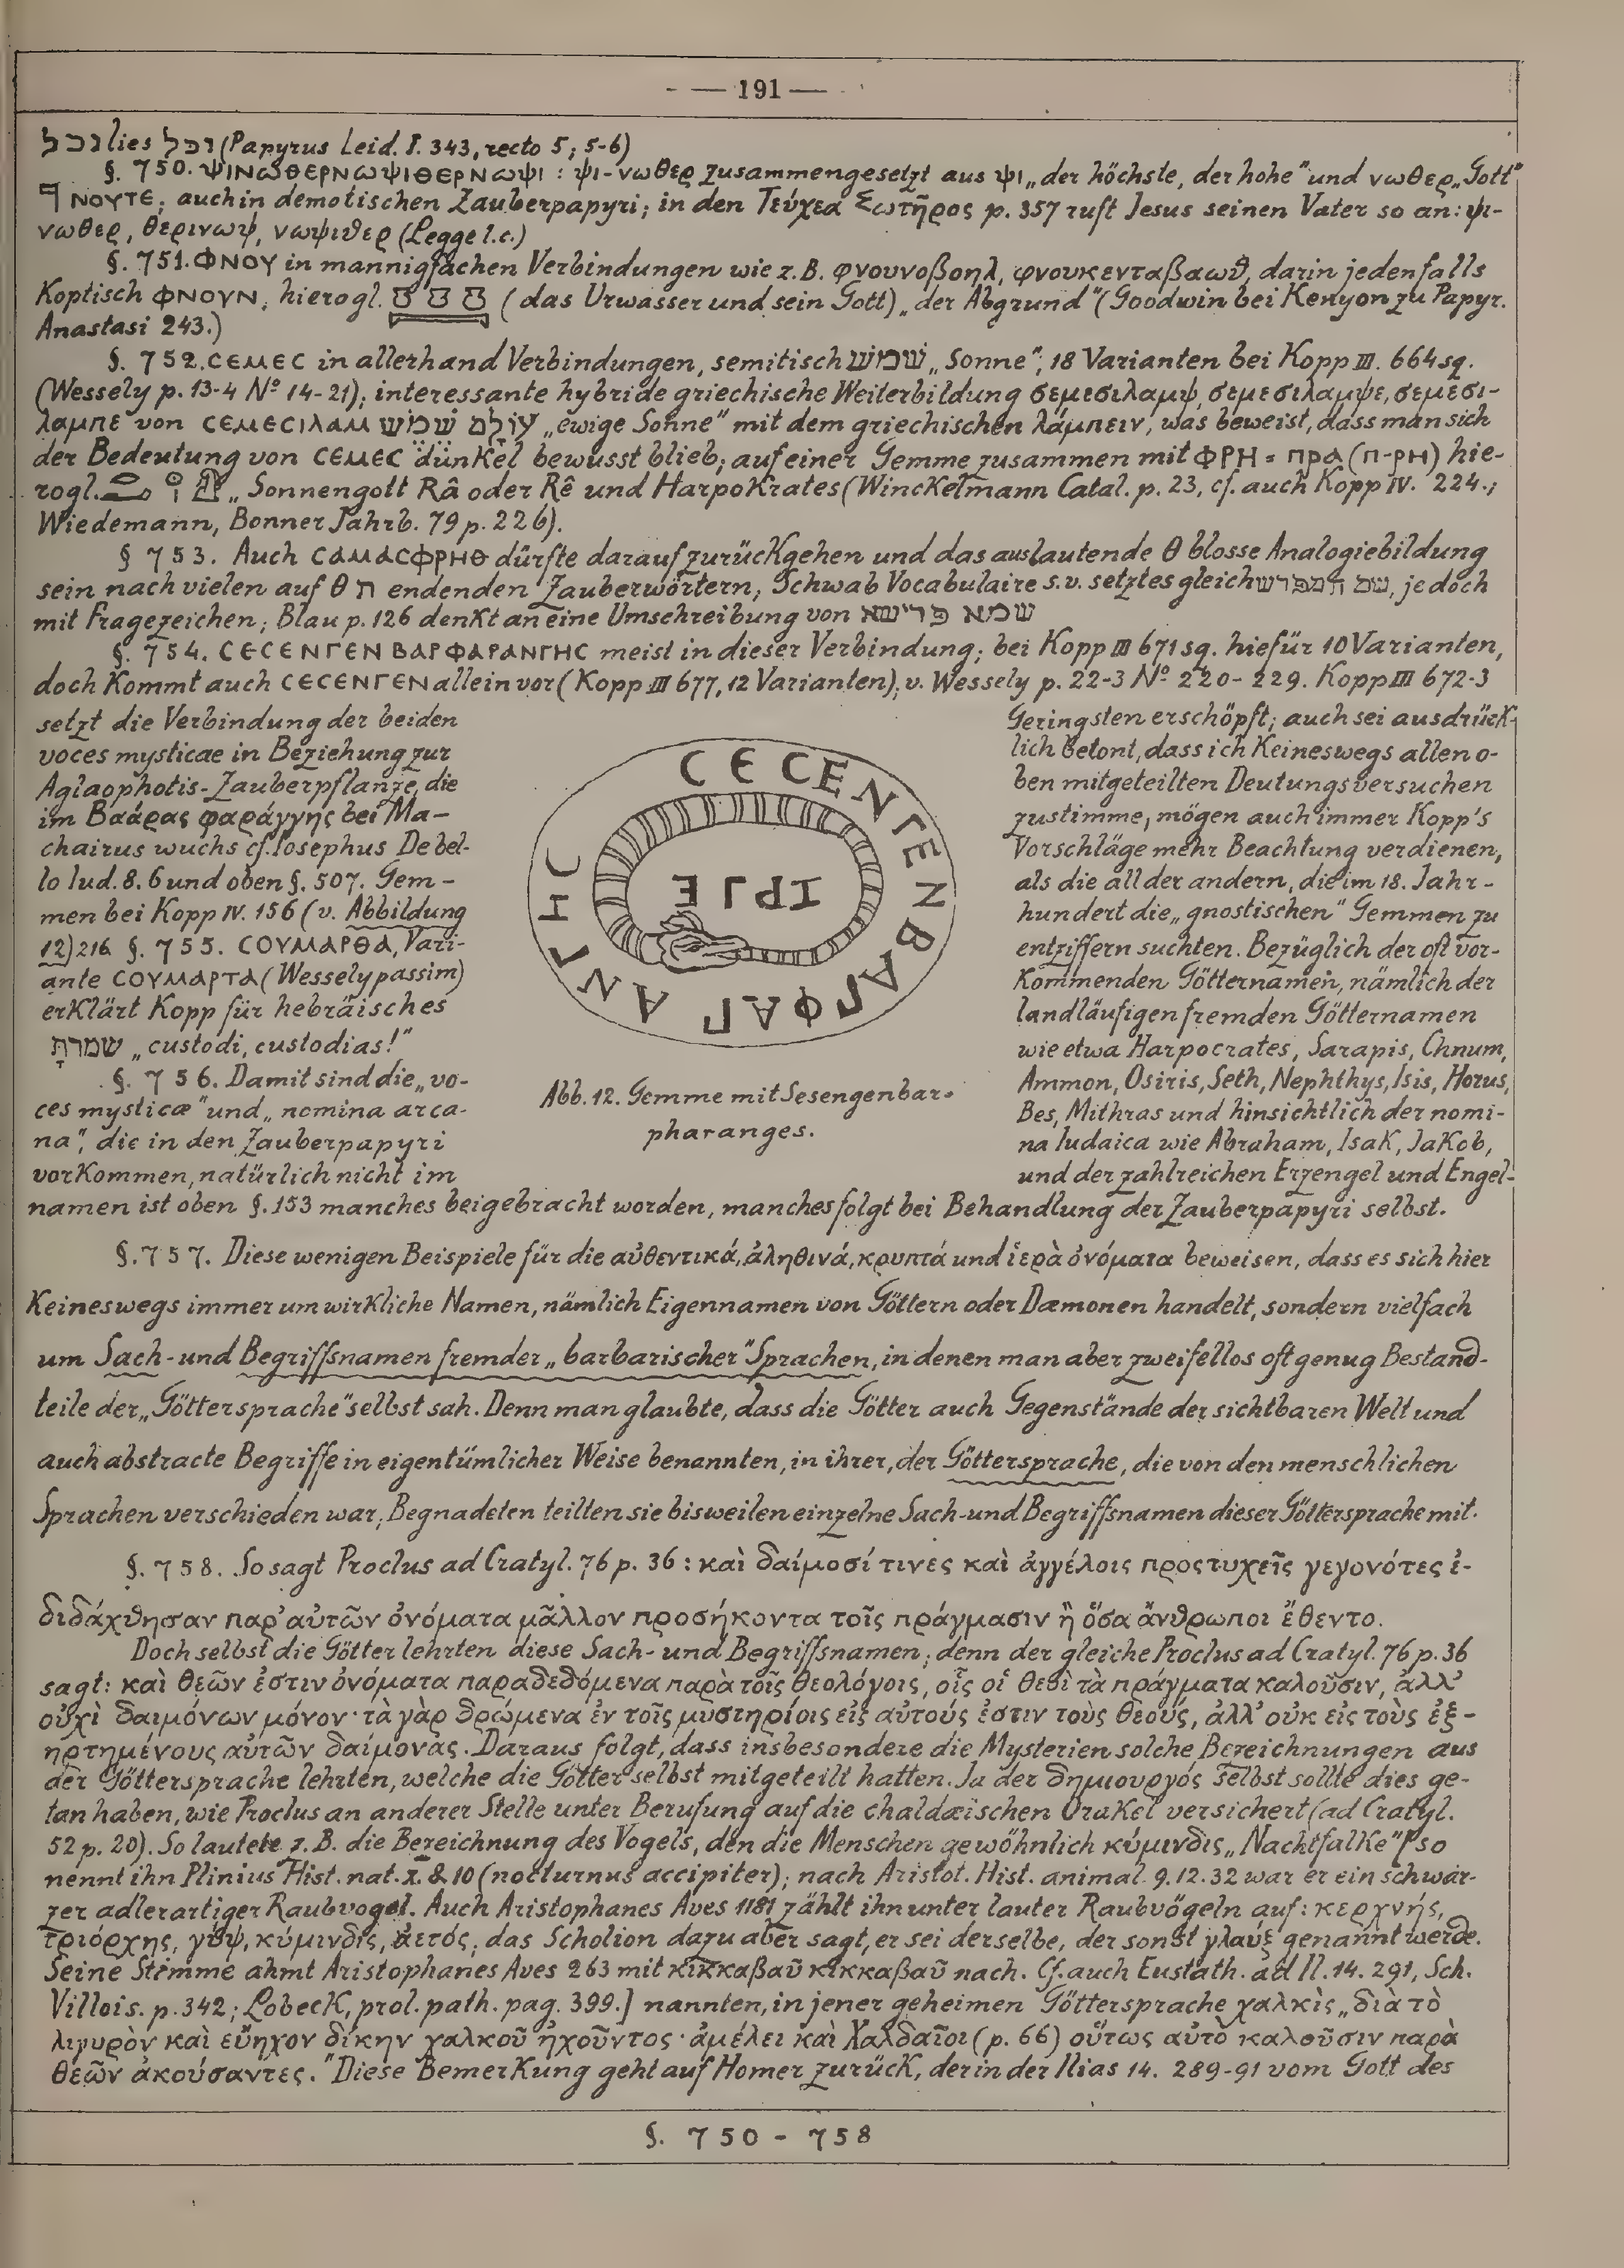 — 191 —
נכל lies רכל (Papyrus Leid. I. 343, recto 5; 5-6)
§. 750. ΨΙΝΩΘΕΡΝΩΨΙΘΕΡΝΩΨΙ : ψι-νωθερ zusammengesetzt aus ψι „der höchste, der hohe" und νωθερ „Gott"
ΝΟΥΤΕ; auch in demotischen Zauberpapyri; in den Τεύχεα Σωτῆρος p. 357 ruft Jesus seinen Vater so an: ψι-
νωθερ, θερινωψ, νωψιθερ (Legge l.c.)
§. 751. ΦΝΟΥ in mannigfachen Verbindungen wie z.B. φνουνοβοηλ, φνουκενταβαωθ, darin jedenfalls
Koptisch ΦΝΟΥΝ; hierogl. (das Urwasser und sein Gott) „der Abgrund" (Goodwin bei Kenyon zu Papyr.
Anastasi 243.)
§. 752. CEMEC in allerhand Verbindungen, semitisch שמש „Sonne"; 18 Varianten bei Kopp III. 664 sq.
(Wessely p. 13-4 Nº 14-21); interessante hybride griechische Weiterbildung σεμεσιλαμψ, σεμεσιλαμψε, σεμεσι-
λαμπε von CEMECIΛAM עולם שמש „ewige Sonne" mit dem griechischen λάμπειν, was beweist, dass man sich
der Bedeutung von CEMEC dunkel bewusst blieb; auf einer Gemme zusammen mit ΦΡΗ = πρα (π-ρΗ) hie-
rogl. „Sonnengott Râ oder Rê und Harpokrates (Winckelmann Catal. p. 23, cf. auch Kopp IV. 224.;
Wiedemann, Bonner Jahrb. 79 p. 226).
§ 753. Auch CAMACΦPHΘ dürfte darauf zurückgehen und das auslautende θ blosse Analogiebildung
sein nach vielen auf θ ת endenden Zauberwörtern; Schwab Vocabulaire s.v. setzt es gleich שם המפרש, jedoch
mit Fragezeichen; Blau p. 126 denkt an eine Umschreibung von שמא פרישא
§. 754. CECENΓEN BAPΦAPANΓHC meist in dieser Verbindung; bei Kopp III 671 sq. hiefür 10 Varianten,
doch kommt auch CECENΓEN allein vor (Kopp III 677, 12 Varianten), v. Wessely p. 22-3 Nº 220-229. Kopp III 672-3
setzt die Verbindung der beiden
voces mysticae in Beziehung zur
Aglaophotis-Zauberpflanze, die
im Βαάρας φαράγγης bei Ma-
chairus wuchs cf. Iosephus De bel-
lo Iud. 8. 6 und oben §. 507. Gem-
men bei Kopp IV. 156 (v. Abbildung
12) 216 §. 755. COYMAPΘA, Vari-
ante COYMAPTA (Wessely passim)
erklärt Kopp für hebräisches
שמרת „custodi, custodias!"
§. 756. Damit sind die „vo-
ces mysticæ" und „nomina arca-
na", die in den Zauberpapyri
vorkommen, natürlich nicht im
CECENΓENBAΓΦAΓANΓHC
Abb. 12. Gemme mit Sesengenbar-
pharanges.
Geringsten erschöpft; auch sei ausdrück-
lich betont, dass ich keineswegs allen o-
ben mitgeteilten Deutungsversuchen
zustimme, mögen auch immer Kopp's
Vorschläge mehr Beachtung verdienen,
als die all der andern, die im 18. Jahr-
hundert die „gnostischen" Gemmen zu
entziffern suchten. Bezüglich der oft vor-
kommenden Götternamen, nämlich der
landläufigen fremden Götternamen
wie etwa Harpocrates, Sarapis, Chnum,
Ammon, Osiris, Seth, Nephthys, Isis, Horus,
Bes, Mithras und hinsichtlich der nomi-
na Iudaica wie Abraham, Isak, Jakob,
und der zahlreichen Erzengel und Engel-
namen ist oben §. 153 manches beigebracht worden, manches folgt bei Behandlung der Zauberpapyri selbst.
§. 757. Diese wenigen Beispiele für die αὐθεντικά, ἀληθινά, κρυπτά und ἱερὰ ὀνόματα beweisen, dass es sich hier
Keineswegs immer um wirkliche Namen, nämlich Eigennamen von Göttern oder Dæmonen handelt, sondern vielfach
um Sach- und Begriffsnamen fremder „barbarischer" Sprachen, in denen man aber zweifellos oft genug Bestand-
teile der „Göttersprache" selbst sah. Denn man glaubte, dass die Götter auch Gegenstände der sichtbaren Welt und
auch abstracte Begriffe in eigentümlicher Weise benannten, in ihrer, der Göttersprache, die von den menschlichen
Sprachen verschieden war; Begnadeten teilten sie bisweilen einzelne Sach- und Begriffsnamen dieser Göttersprache mit.
§. 758. So sagt Proclus ad Cratyl. 76 p. 36 : καὶ δαίμοσί τινες καὶ ἀγγέλοις προςτυχεῖς γεγονότες ἐ-
διδάχθησαν παρ' αὐτῶν ὀνόματα μᾶλλον προσήκοντα τοῖς πράγμασιν ἢ ὅσα ἄνθρωποι ἔθεντο.
Doch selbst die Götter lehrten diese Sach- und Begriffsnamen; denn der gleiche Proclus ad Cratyl. 76 p. 36
sagt: καὶ θεῶν ἐστιν ὀνόματα παραδεδόμενα παρὰ τοῖς θεολόγοις, οἷς οἱ θεοὶ τὰ πράγματα καλοῦσιν, ἀλλ'
οὐχὶ δαιμόνων μόνον· τὰ γὰρ δρώμενα ἐν τοῖς μυστηρίοις εἰς αὐτούς ἐστιν τοὺς θεούς, ἀλλ' οὐκ εἰς τοὺς ἐξ-
ηρτημένους αὐτῶν δαίμονας. Daraus folgt, dass insbesondere die Mysterien solche Bezeichnungen aus
der Göttersprache lehrten, welche die Götter selbst mitgeteilt hatten. Ja der δημιουργός selbst sollte dies ge-
tan haben, wie Proclus an anderer Stelle unter Berufung auf die chaldæischen Orakel versichert (ad Cratyl.
52 p. 20). So lautete z.B. die Bezeichnung des Vogels, den die Menschen gewöhnlich κύμινδις „Nachtfalke" [so
nennt ihn Plinius Hist. nat. X. 8. 10 (nocturnus accipiter); nach Aristot. Hist. animal. 9. 12. 32 war er ein schwar-
zer adlerartiger Raubvogel. Auch Aristophanes Aves 1181 zählt ihn unter lauter Raubvögeln auf: κερχνής,
τριόρχης, γύψ, κύμινδις, ἀετός; das Scholion dazu aber sagt, er sei derselbe, der sonst γλαύξ genannt werde.
Seine Stimme ahmt Aristophanes Aves 263 mit κικκαβαῦ κικκαβαῦ nach. Cf. auch Eustath. ad Il. 14. 291, Sch.
Villois. p. 342; Lobeck, prol. path. pag. 399.] nannten, in jener geheimen Göttersprache χαλκὶς „διὰ τὸ
λιγυρὸν καὶ εὔηχον δίκην χαλκοῦ ἠχοῦντος· ἀμέλει καὶ Χαλδαῖοι (p. 66) οὕτως αὐτὸ καλοῦσιν παρὰ
θεῶν ἀκούσαντες." Diese Bemerkung geht auf Homer zurück, der in der Ilias 14. 289-91 vom Gott des
§. 750 - 758